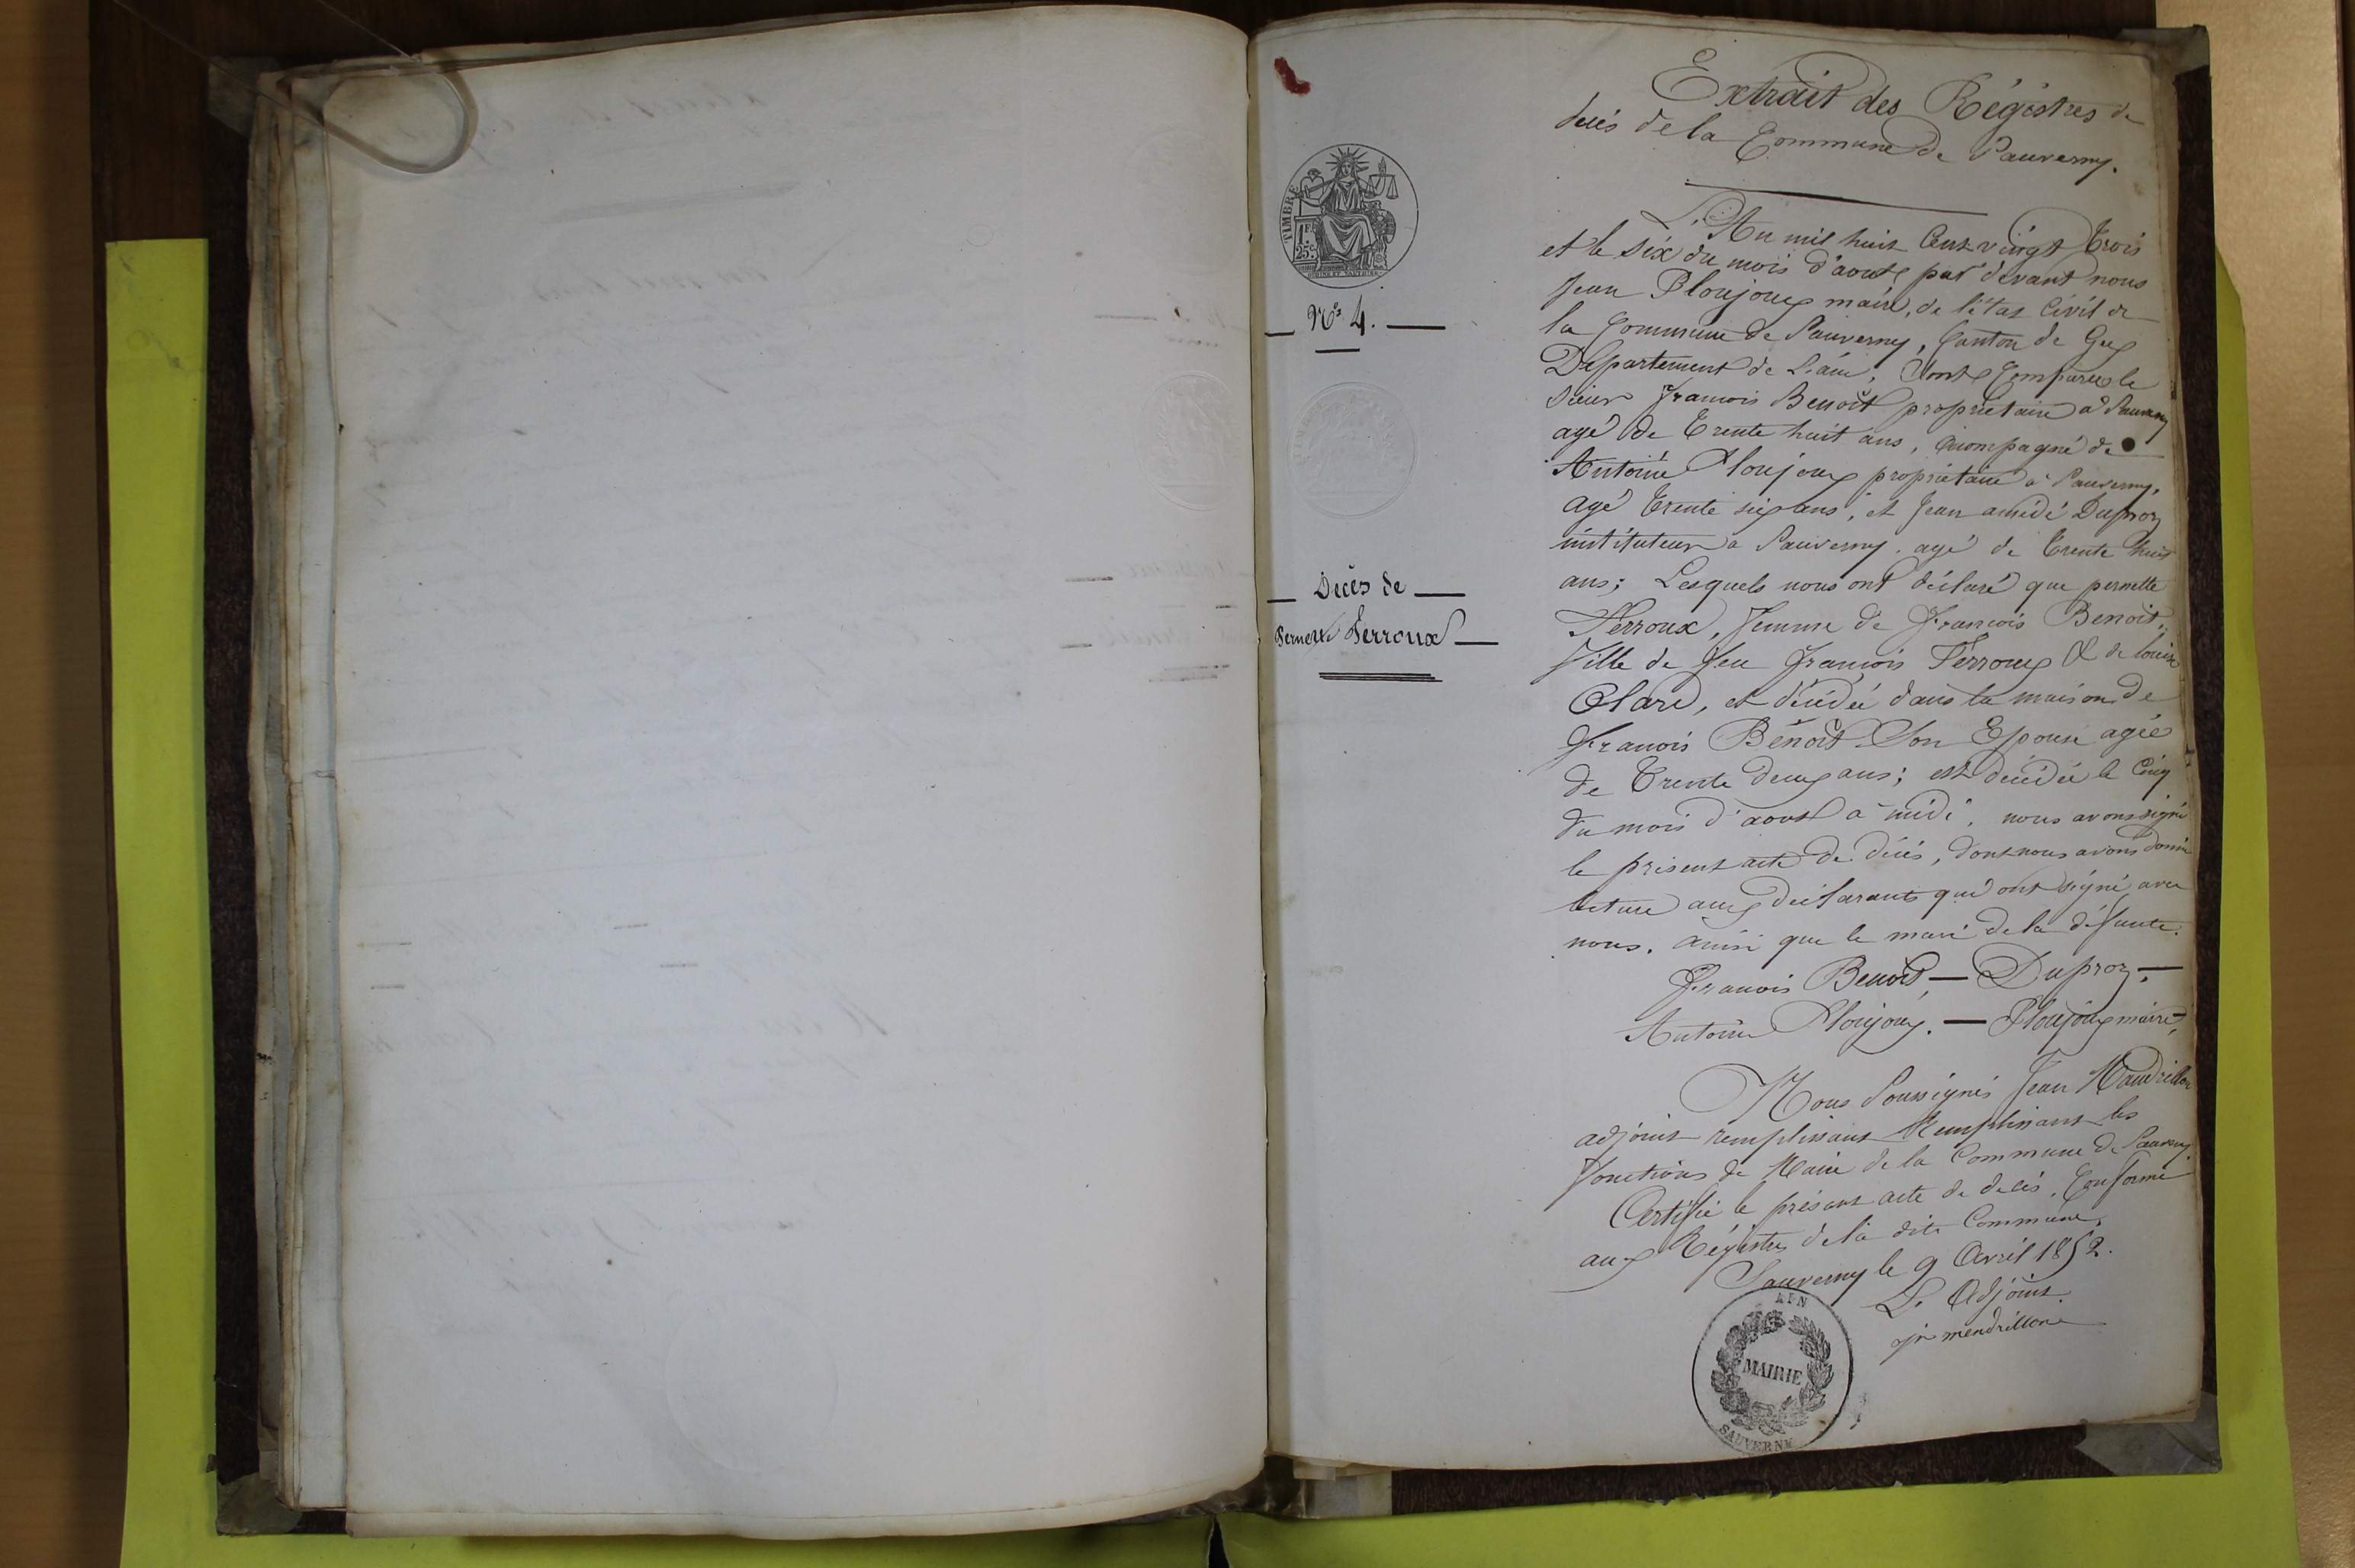 Extrait des Régistres de
décès de la Commune de Sauverny.
TIMBRE
1 F.
25 c.
N° 4.
L'An mil huit Cent vingt Trois
et le Six du mois d'août par devant nous
Jean Ploujoux maire, de l'état Civil de
la Commune de Sauverny, Canton de Gex
Département de L'ain, Sont Comparu le
Sieur francois Benoit proprietaire à Sauverny
agé de Trente huit ans, accompagné de
Antoine Ploujoux propriétaire à Sauverny,
agé Trente six ans, et Jean amédé Duproz
instituteur a Sauverny. agé de Trente huit
ans; Lesquels nous ont déclaré que pernette
Décès de
Pernette Ferroux
Ferroux, femme de François Benoit,
fille de feu François Ferroux & de louise
Clare, et décédée dans la maison de
francois Benoit Son Epoux agée
de Trente deux ans; est décédée le Cinq
du mois d'aoust a midi, nous avons signé
le présent acte de décés, dont nous avons donné
lecture aux déclarants qui ont signé avec
nous. ainsi que le mari de la défunte.
francois Benoit, — Duproz, —
Antoine Ploujoux. — Ploujoux maire,
Nous Soussignés Jean Mandrillon
adjoint remplissant Remplissant les
fonctions de Maire de la Commune de Sauverny.
Certifié le présent acte de décés, Conforme
aux Régistres de la dite Commune,
Sauverny le 9 Avril 1852.
L. Adjoint.
jn mendrillon
AIN
MAIRIE
SAUVERNY